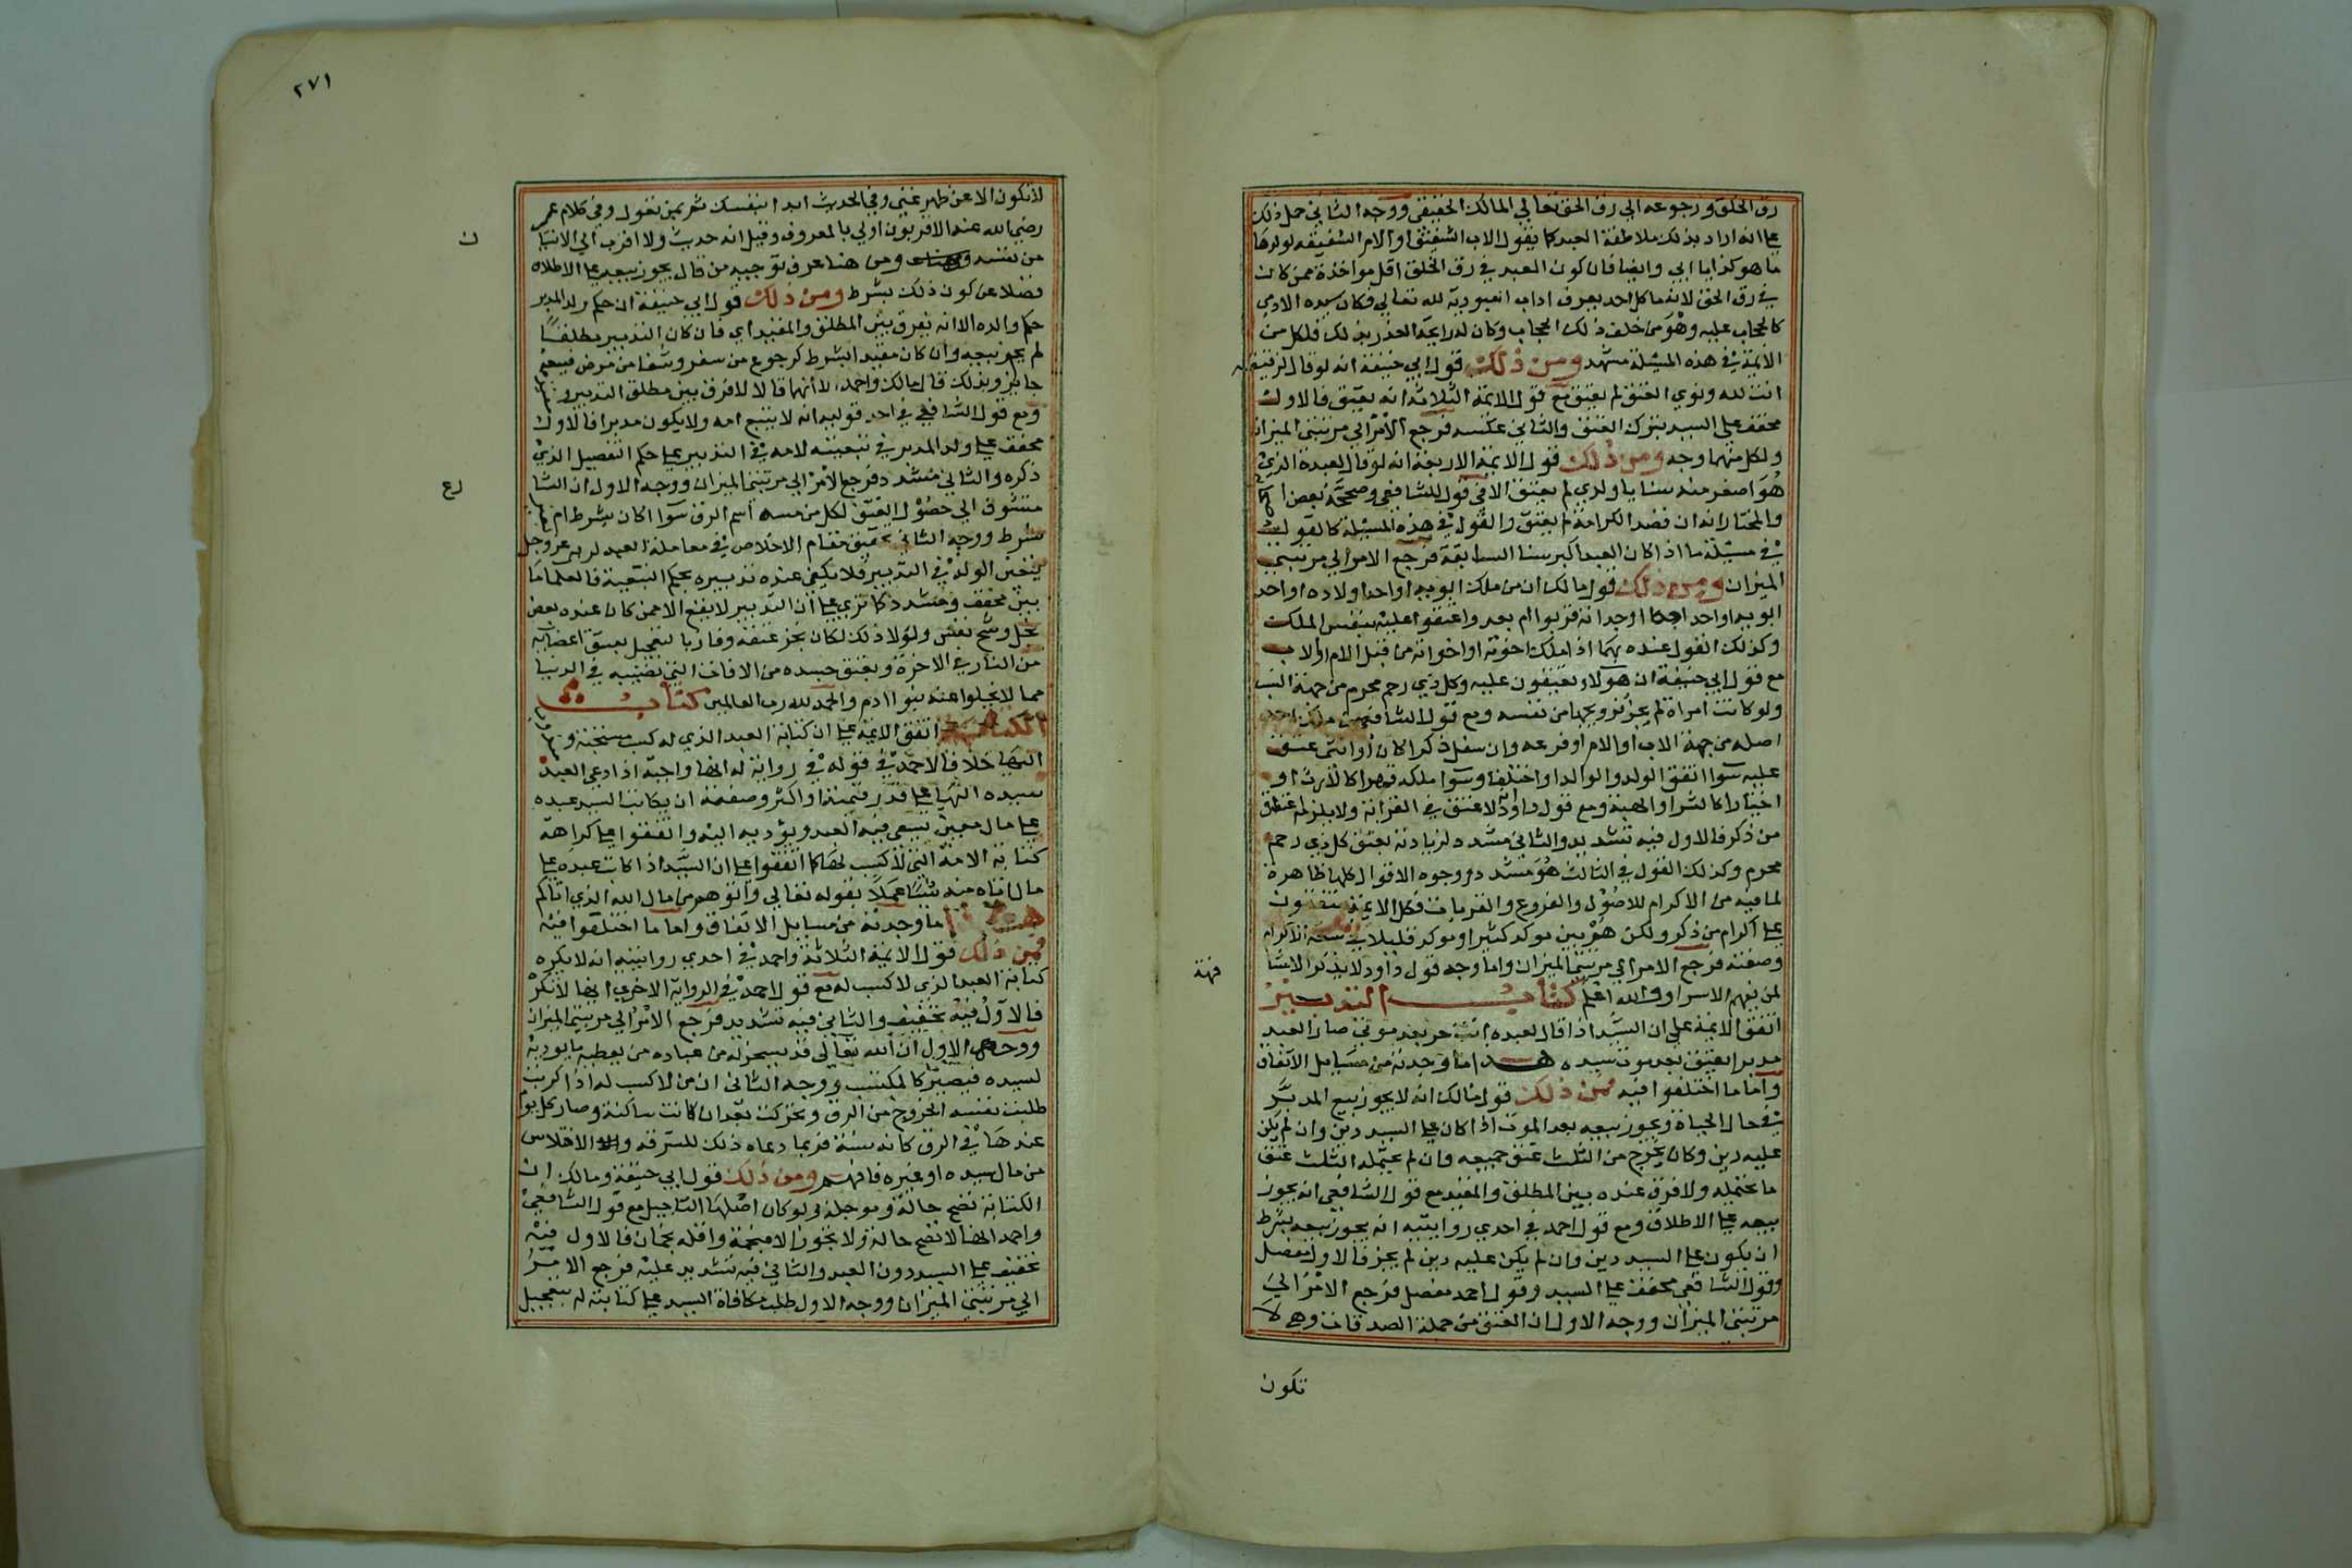 رق الخلق ورجوعه الي رق الحق تعالي المالك الحقيقي ووجه الثاني حمل ذلك
علي انه اراد بذلك ملاطفة العبد كما يقول الاب الشفيق او الام الشفيقه لولدها
ما هو كذا يا ابي وايضا فان كون العبد في رق الخلق اقل مواخذة ممن كان
في رق الحق لانه ما كل احد يعرف اداب العبودية لله تعالي فكان سيده الادمي
كالحجاب عليه وهو من خلف ذلك الحجاب وكان له رايحة العذر بذلك فلكل من
الائمة في هذه المسئلة مشهد ومن ذلك قول ابي حنيفة انه لو قال لرقيقه
انت لله ونوي العتق لم يعتق مع قول الائمة الثلاثة انه يعتق فالاول
مخفف علي السيد بترك العتق والثاني عكسه فرجع الامر الي مرتبتي الميزان
ولكل منهما وجه ومن ذلك قول الائمة الاربعة انه لو قال لعبده الذي
هو اصغر منه سنا يا ولدي لم يعتق الا في قول للشافعي وصححه بعض اصحابه
والمختار انه ان قصد الكرامة لم يعتق والقول في هذه المسئلة كالقول
في مسئلة ما اذا كان العبد اكبر سنا السابقة فرجع الامر الي مرتبتي
الميزان ومن ذلك قول مالك ان من ملك ابويه او احد اولاده او احد
ابويه او احد اجدا او جداته قربوا ام بعدوا عتقوا عليه بنفس الملك
وكذلك القول عنده بهما اذا ملك اخوته او اخواته من قبل الام او الاب
مع قول ابي حنيفة ان هولاء يعتقون عليه وكل ذي رحم محرم من جهة النسب
ولو كانت امراة لم يجز تزويجها من نفسه ومع قول الشافعي من ملك احد
اصله من جهة الاب او الام او فرعه وان سفل ذكرا كان او انثي عتق
عليه سوا اتفق الولد والوالد او اختلفا وسوا ملكه قهرا كالارث او
اختيارا كالشرا والهبة ومع قول داود لا عتق في القرابة ولا يلزمه عتق
من ذكر فالاول فيه تشديد والثاني مشدد لزيادته بعتق كل ذي رحم
محرم وكذلك القول في الثالث هو مشدد ووجوه الاقوال كلها ظاهرة
لما فيه من الاكرام للاصول والفروع والقربات فكل الايمة متفقون
علي اكرام من ذكر ولكن هم بين موكد كثيرا وموكد قليلا في الاكرام
وصفته فرجع الامر الي مرتبتي الميزان واما وجه قول داود لا يذكر الا مشا
لمن يفهم الاسرار والله اعلم كتاب التدبير
اتفق الائمة علي ان السيد اذا قال لعبده انت حر بعد موتي صار العبد
مدبرا يعتق بعد موت سيده هذا ما وجدته من مسايل الاتفاق
واما ما اختلفوا فيه فمن ذلك قول مالك انه لا يجوز بيع المدبر
في حال الحياة ويجوز بيعه بعد الموت اذا كان علي السيد دين وان لم يكن
عليه دين وكان يخرج من الثلث عتق جميعه وان لم يحتمله الثلث عتق
ما يحتمله ولا فرق عنده بين المطلق والمقيد مع قول الشافعي انه يجوز
بيعه علي الاطلاق ومع قول احمد في احدي روايتيه انه يجوز بيعه بشرط
ان يكون علي السيد دين وان لم يكن عليه دين لم يجز فالاول مفصل
وقول الشافعي مخفف علي السيد وقول احمد مفصل فرجع الامر الي
مرتبتي الميزان ووجه الاول ان العتق من جملة الصدقات وهي لا
تكون
٢٧١
لا تكون الا عن ظهر غني وفي الحديث ابدا بنفسك ثم بمن تعول وفي كلام عمر
رضي الله عنه الاقربون اولي بالمعروف وقيل انه حديث ولا اقرب الي الانسان
من نفسه ومن هنا عرف توجيه من قال يجوز بيعه علي الاطلاق
فضلا عن كون ذلك بشرط ومن ذلك قول ابي حنيفة ان حكم ولد المدبر
حكم والده الا انه يفرق بين المطلق والمقيد اي فان كان التدبير مطلقا
لم يجز بيعه وان كان مقيدا بشرط كرجوع من سفر وشفا من مرض فبيعه
جايز وبذلك قال مالك واحمد الا انهما قالا لا فرق بين مطلق التدبير و
ومع قول الشافعي في احد قوليه انه لا يتبع امه ولا يكون مدبرا فالاول
مخفف علي ولد المدبر في تبعيته لامه في التدبير علي حكم التفصيل الذي
ذكره والثاني مشدد فرجع الامر الي مرتبتي الميزان ووجه الاول ان الشا
متشوف الي حصول العتق لكل من مسه اسم الرق سوا اكان بشرط ام
شرط ووجه الثاني تحقيق مقام الاخلاص في معاملة العبد لربه عز وجل
الولد في التدبير فلا يكفي عنده تدبيره بحكم التبعية فالعلما ما
بين مخفف ومشدد كما تري علي ان التدبير لا يقع الا ممن كان عنده بعض
بخل وشح نفس ولولا ذلك لكان نجز عتقه وفاز بالتعجيل بعتق اعضايه
من النار في الاخرة وبعتق جسده من الافات التي تصيبه في الدنيا
مما لا يخلوا عنه بنوا ادم والحمد لله رب العالمين كتاب
الكتابة اتفق الايمة علي ان كتابة العبد الذي له كسب مستحبة و
اليها خلافا لاحمد في قوله في رواية له انها واجبة اذا دعي العبد
سيده اليها علي قدر قيمته او اكثر وصفته ان يكاتب السيد عبده
علي مال معين يسعي فيه العبد ويؤديه اليه واتفقوا علي كراهة
كتابة الامة التي لا كسب لها كما اتفقوا علي ان السيد اذا كاتب عبده علي
مال اتاه منه شيئا عملا بقوله تعالي واتوهم من مال الله الذي اتاكم
هذا ما وجدته من مسايل الاتفاق واما ما اختلفوا فيه
فمن ذلك قول الائمة الثلاثة واحمد في احدي روايتيه انه لا يكره
كتابة العبد الذي لا كسب له مع قول احمد في الرواية الاخري انها تكره
فالاول فيه تخفيف والثاني فيه تشديد فرجع الامر الي مرتبتي الميزان
ووجه الاول ان الله تعالي قد يسخر له من عباده من يعطيه ما يوديه
لسيده فيصير كالمكتسب ووجه الثاني ان من لا كسب له اذا كوتب
طلبت نفسه الخروج من الرق وتحركت بعد ان كانت ساكنة وصار كل يوم
عندها في الرق كانه سنة فربما دعاه ذلك للسرقة والاختلاس
من مال سيده او غيره فافهم ومن ذلك قول ابي حنيفة ومالك ان
الكتابة تصح حالة وموجلة ولو كان اصلها التاجيل مع قول الشافعي
واحمد انها لا تصح حالة ولا تجوز الا منجمة واقله نجمان فالاول فيه
تخفيف علي السيد دون العبد والثاني فيه تشديد عليه فرجع الامر
الي مرتبتي الميزان ووجه الاول طلب مكافاة السيد علي كتابته له بتعجيل